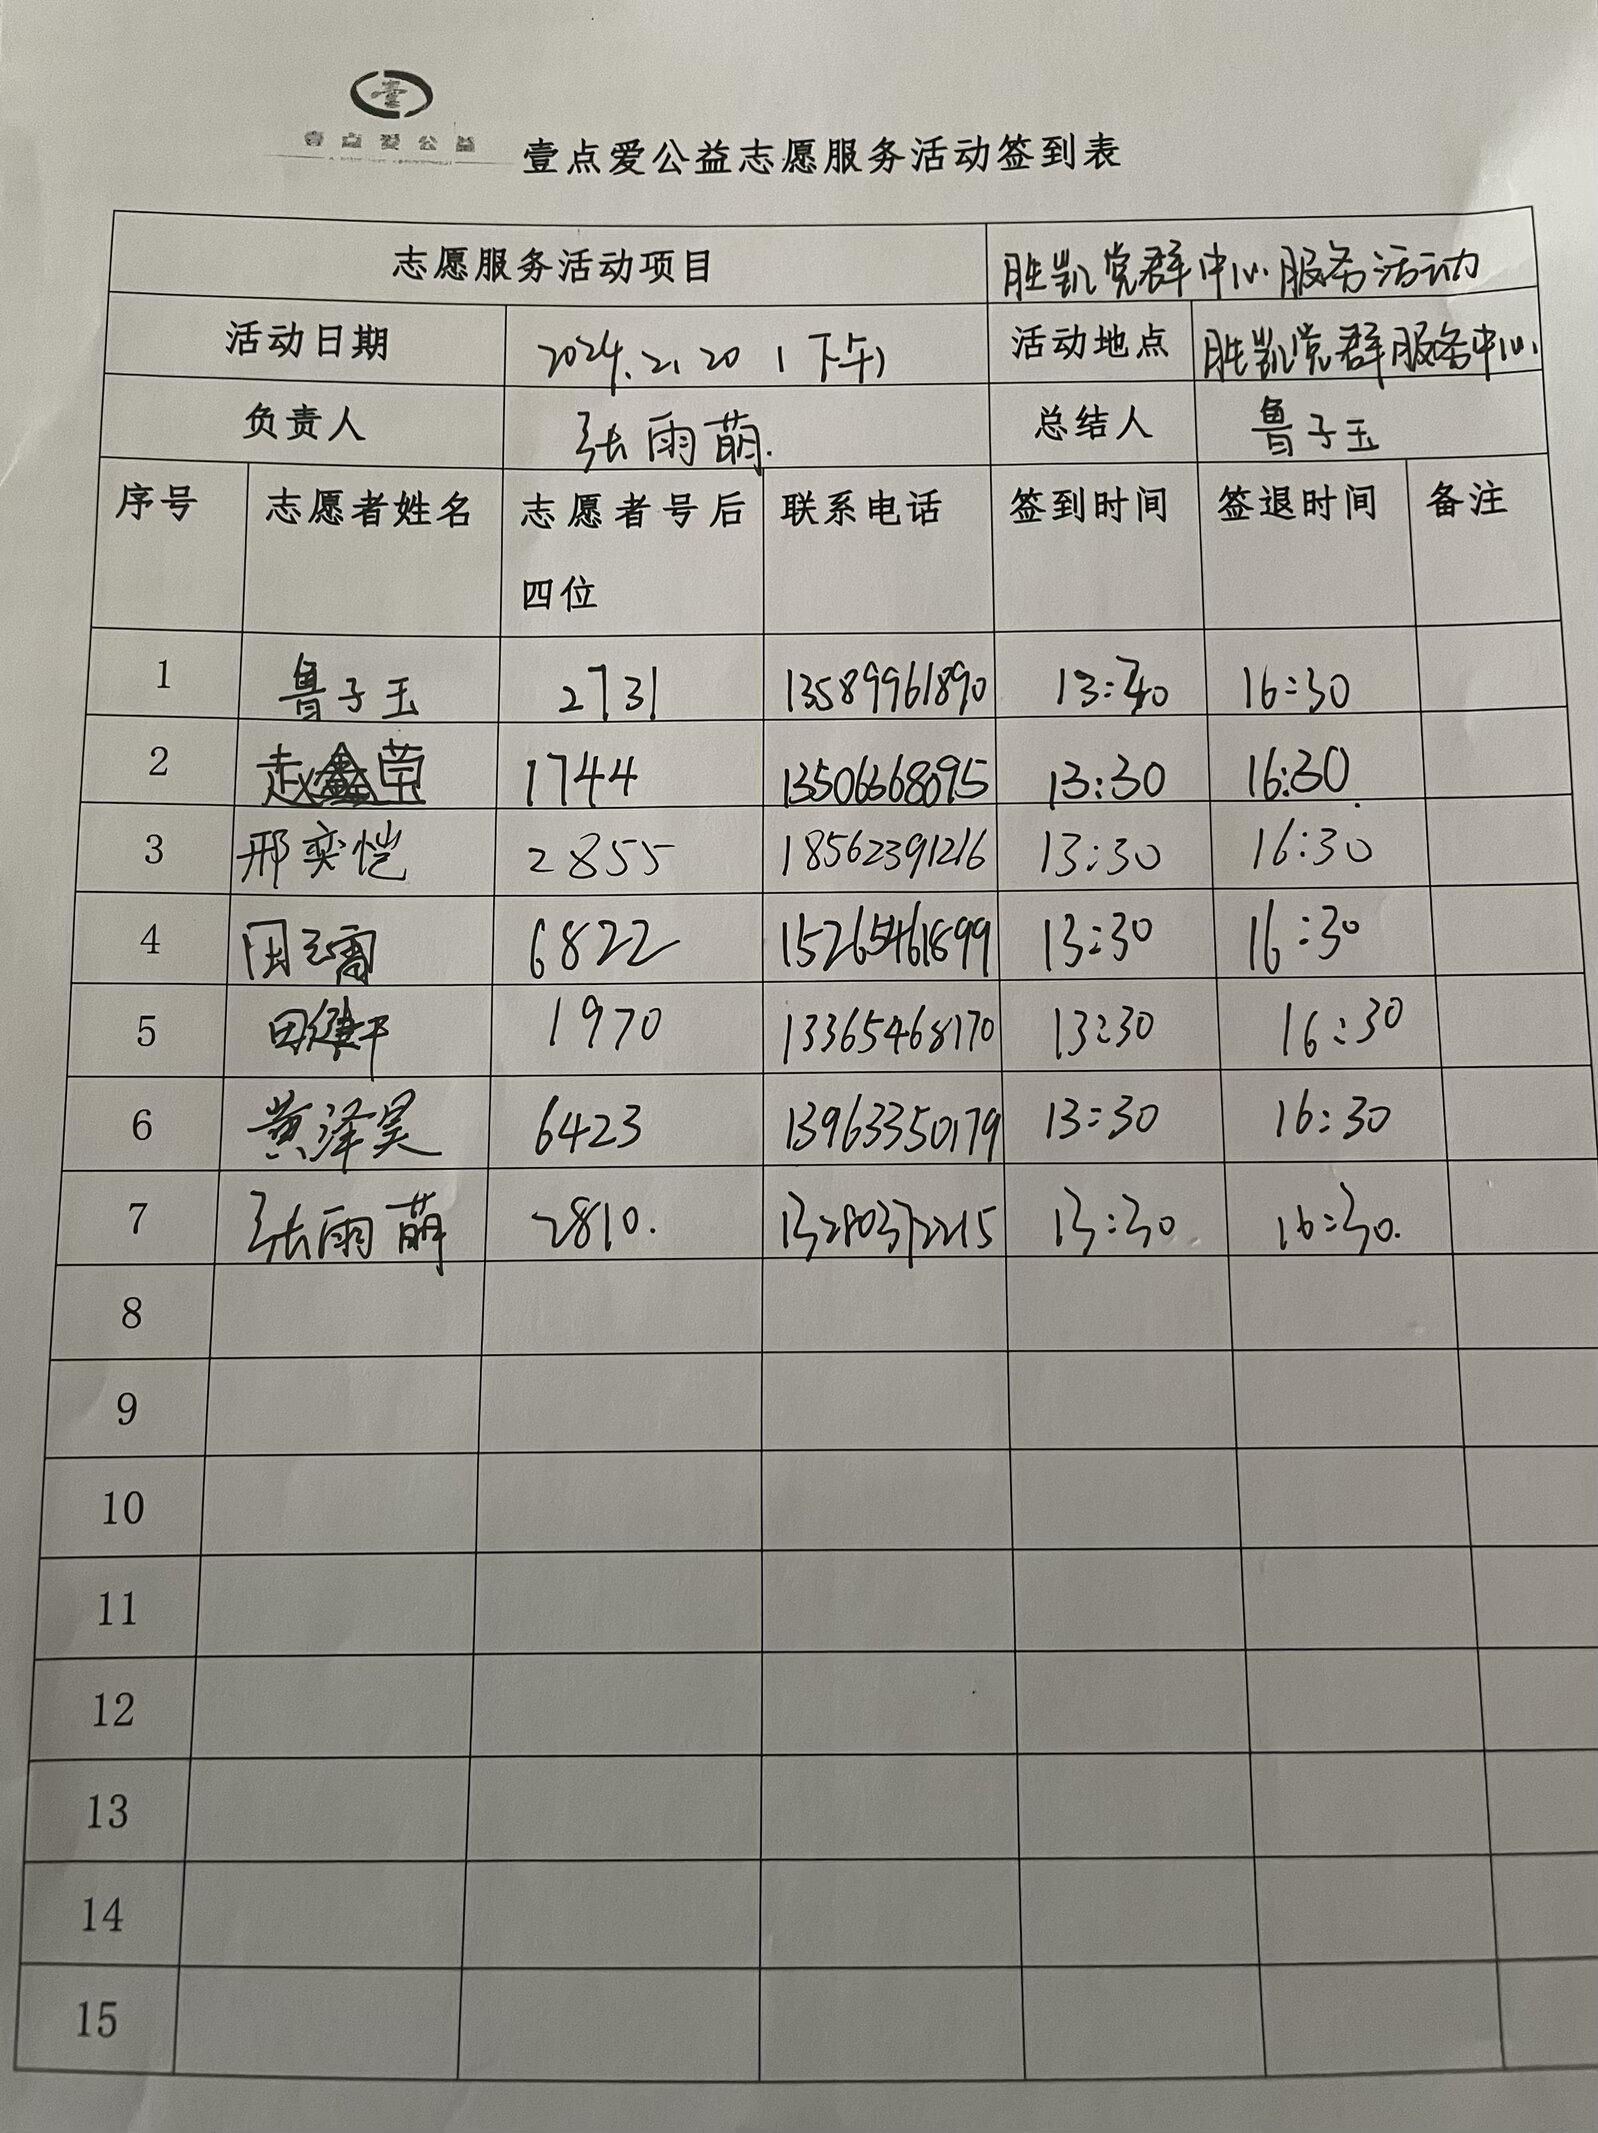 壹点爱公益
壹点爱公益志愿服务活动签到表
志愿服务活动项目 胜凯党群中心服务活动
活动日期 2024.2.20（下午） 活动地点 胜凯党群服务中心
负责人 张雨萌. 总结人 鲁子玉
序号 志愿者姓名 志愿者号后 联系电话 签到时间 签退时间 备注
四位
1 鲁子玉 2731 13589961890 13:40 16:30
2 赵鑫荣 1744 13506368095 13:30 16:30
3 邢奕恺 2855 18562391216 13:30 16:30
4 6822 15265461899 13:30 16:30
5 1970 13365468170 13:30 16:30
6 黄泽昊 6423 13963350179 13:30 16:30
7 张雨萌 2810. 13280372215 13:30 16:30.
8
9
10
11
12
13
14
15